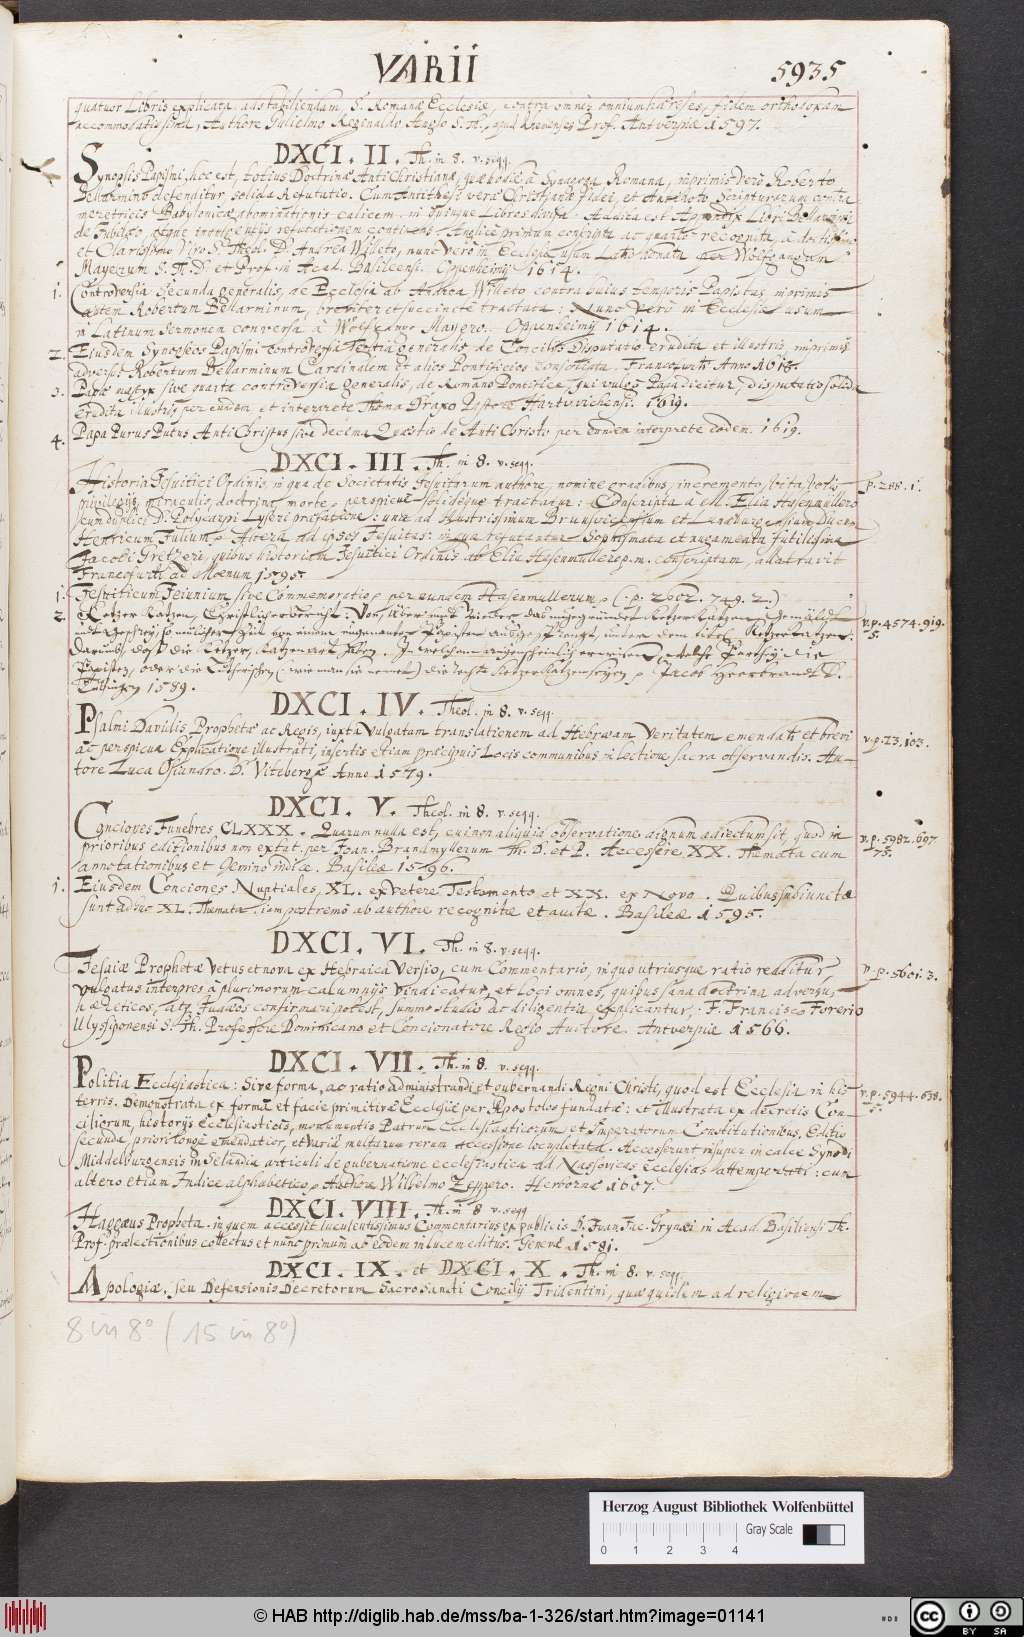 VARII 5935
quatuor Libris explicata, ad stabiliendam, S. Romanæ Ecclesiæ, contra omnes omnium hæreses, fidem orthodoxam
accommodatissima, Authore Gulielmo Reginaldo Anglo S. Th. apud Prof. Antverpiæ 1597.
DXCI. II. Th. in 8. v. seqq.
Synopsis Papismi, hoc est, totius Doctrinæ AntiChristianæ, quæ hodie à Synagoga Romana, inprimis verò Roberto
Bellarmino defenditur, solida Refutatio. Cum Antithesi veræ Christianæ fidei, et Antidoto Scripturarum contra
meretricis Babylonicæ abominationis calicem. in quinque Libros divisa. Addita est Appendix Libri Bellarmini
de Jubilæo, atque indulgentijs refutationem continens. Anglice primum conscripta ac quarto recognita, à doctissimo
et Clarissimo Viro S. Theol. D. Andrea Willeto, nunc verò in Ecclesiæ usum Latio donata per Wolfgangum
Mayerum S. Th. D. et Prof. in Acad. Basileensi. Oppenheimij 1614.
1. Controversia Secunda generalis, de Ecclesia ab Andrea Willeto contra hujus temporis Papistas inprimis
autem Robertum Bellarminum, breviter et succincte tractata: Nunc verò in Ecclesiæ usum
in Latinum Sermonem conversa à Wolfgango Mayero. Oppenheimij 1614.
2. Ejusdem Synopseos Papismi controversia Tertia generalis de Concilijs Disputatio erudita et illustris, inprimis
adversus Robertum Bellarminum Cardinalem et alios Pontificios consortata. Francofurti Anno 1618.
3. Papæ sive quarta controversia generalis, de Romano Pontifice, qui vulgo Papa dicitur, disputatio solida
erudita illustris per eundem et interprete Thoma Draxo Pastore Hartwichensi. 1619.
4. Papa Purus Putus AntiChristus sive decima Quæstio de AntiChristo per eundem interprete eodem. 1619.
DXCI. III. Th. in 8. v. seqq.
Historia Jesuitici Ordinis, in qua de Societatis Jesuitarum authore, nomine gradibus, incremento, vita, votis p. 288. 1.
privilegijs, miraculis, doctrina, morte, perspicuè solideque tractatur: Conscripta à M. Elia Hasenmullero
cum duplici D. Polycarpi Lyseri præfatione: una ad Illustrissimum Brunsvicensium et Lunæburgensium Ducem
Henricum Julium, Altera ad ipsos Jesuitas: in qua refutantur Sophismata et nugamenta futilissima
Jacobi Gretzeri, quibus historiam Jesuitici Ordinis ab Elia Hasenmullero p. m. conscriptam, allatravit
Francofurti ad Moenum 1595.
1. Jesuiticum Jejunium, sive Commemoratio per eundem Hasenmullerum. (p. 2602. 749. 2.)
2. Ketzer Katzen, Christlicher bericht, Von Ketzer Katzen v. p. 4574. 919.
5.
Tübingen 1589. Jacob Heerbrandt D.
DXCI. IV. Theol. in 8. v. seqq.
Psalmi Davidis Prophetæ ac Regis, iuxta Vulgatam translationem ad Hebræam Veritatem emendati et brevi v. p. 23. 103.
ac perspicua Explicatione illustrati, insertis etiam præcipuis Locis communibus in lectione sacra observandis. Au-
tore Luca Osiandro. D. Vitebergæ Anno 1579.
DXCI. V. Theol. in 8. v. seqq.
Conciones Funebres, CLXXX. Quarum nulla est, cui non aliquid observatione dignum adjectum sit, quod in v. p. 5982. 697
prioribus editionibus non extat. per Joan. Brandmyllerum Th. D. et P. Accessere XX. Themata cum 75.
annotationibus et Gemino indice. Basileæ 1596.
1. Ejusdem Conciones Nuptiales, XL. ex Vetere Testamento et XX. ex Novo. Quibus subiunctæ
sunt adhuc XL. Themata, iam postremò ab authore recognitæ et auctæ. Basileæ 1595.
DXCI. VI. Th. in 8. v. seqq.
Jesaiæ Prophetæ Vetus et nova ex Hebraica Versio, cum Commentario, in quo utriusque ratio redditur, v. p. 5601. 3.
vulgatus interpres à plurimorum calumnijs vindicatur, et loci omnes, quibus sana doctrina adversus
hæreticos, atq. Judæos confirmari potest, summo studio ac diligentia explicantur, F. Francisco Forerio
Ulyssiponensi S. Th. Professore Dominicano et Concionatore Regio Auctore. Antverpiæ 1566.
DXCI. VII. Th. in 8. v. seqq.
Politia Ecclesiastica: Sive forma, ac ratio administrandi et gubernandi Regni Christi, quod est Ecclesia in his v. p. 5944. 638.
terris. Demonstrata ex forma et facie primitivæ Ecclesiæ per Apostolos fundatæ: et illustrata ex decretis Con-
ciliorum, historijs ecclesiasticis, monumentis Patrum Ecclesiasticorum et Imperatorum Constitutionibus. Editio
secunda, priori longe emendatior, et varia multarum rerum accessione locupletata. Accesserunt insuper in calce Synodi
Middelburgensis in Selandia articuli de gubernatione ecclesiastica ad Nassovicas Ecclesias attemperati: cum
altero etiam Indice alphabetico. Authore Wilhelmo Zeppero. Herbornæ 1607.
DXCI. VIII. Th. in 8. v. seqq
Haggæus Propheta. in quem accessit luculentissimus Commentarius ex publicis D. Joan. Jac. Grynæi in Acad. Basiliensi Th.
Prof. prælectionibus collectus et nunc primum ab eodem in lucem editus. Genevæ 1581.
DXCI. IX. et DXCI. X. Th. in 8. v. seqq.
Apologiæ, seu Defensionis Decretorum Sacrosancti Concilij Tridentini, quæ quidem ad religionem
8 in 8° (15 in 8°)
Herzog August Bibliothek Wolfenbüttel
Gray Scale
0 1 2 3 4
© HAB http://diglib.hab.de/mss/ba-1-326/start.htm?image=01141
cc BY SA